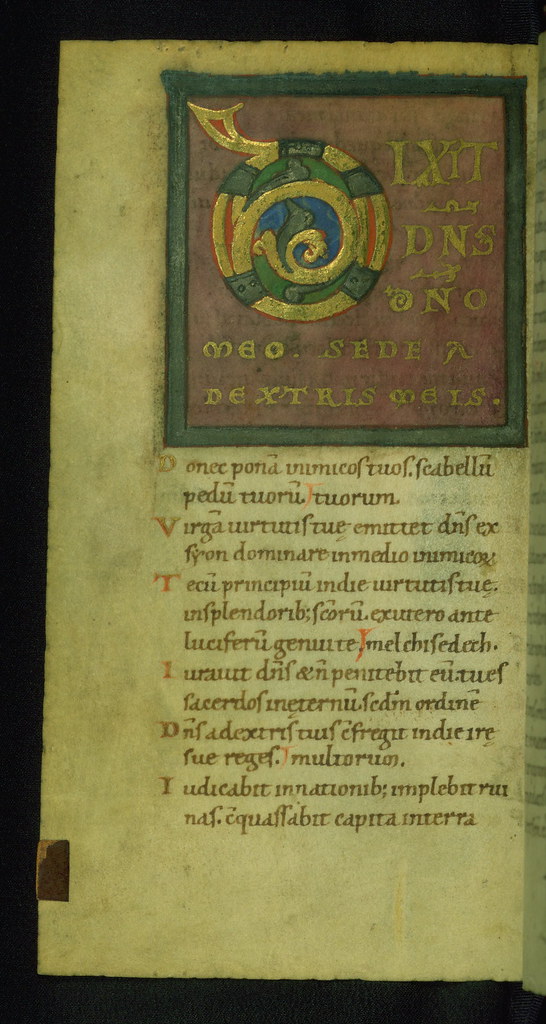 DIXIT
DNS
DNO
MEO. SEDE A
DEXTRIS MEIS.
Donec ponā inimicos tuos. scabellū
pedū tuorū. tuorum.
Virgā uirtutis tuę emittet dn̄s ex
syon dominare inmedio inimicoꝝ
Tecū principiū indie uirtutis tuę.
insplendorib; sc̄orū. exutero ante
luciferū genui te. melchisedech.
Iurauit dn̄s & n̄ penitebit eū. tu es
sacerdos inęternū. scdm̄ ordinē
Dn̄s adextris tuis c̄fregit indie irę
sue reges. multorum.
Iudicabit innationib; implebit rui
nas. c̄quassabit capita interra